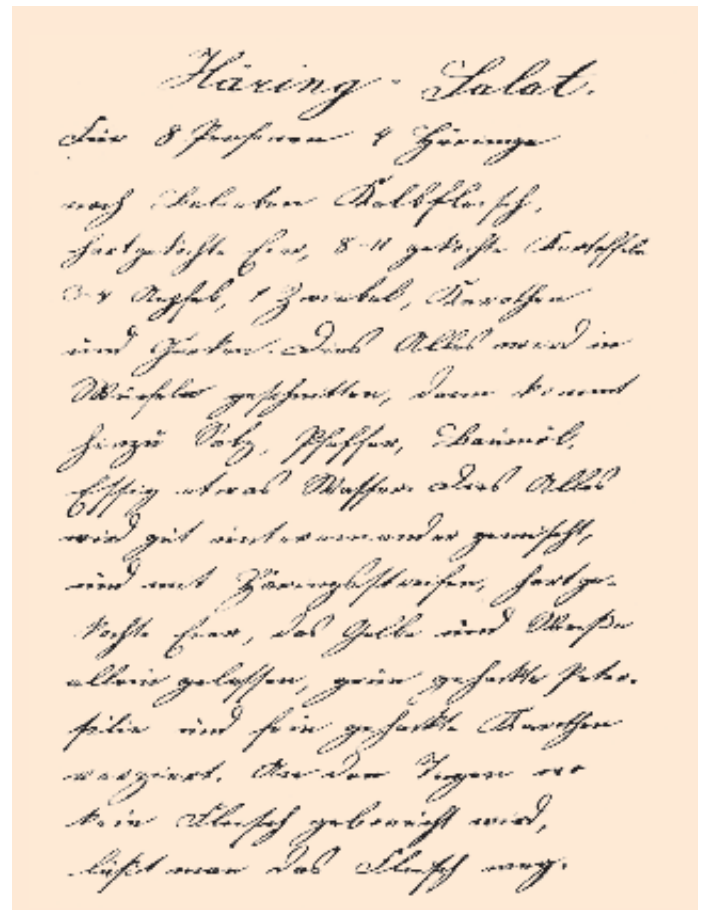 Häring-Salat.
Für 8 Personen 4 Häringe
nach Belieben Kalbfleisch,
hartgekochte Eier, 8-11 gekochte Kartoffeln
3-4 Aepfel, 1 Zwiebel, Karotten
und Gurken. Dies Alles wird in
Würfeln geschnitten, dann kommt
hinzu Salz, Pfeffer, Baumöl,
Essig etwas Wasser. Dies Alles
wird gut untereinander gemischt,
und mit Häringsstreifen, hartge-
kochte Eier, das Gelbe und Weiße
allein gelassen, grün gehackte Peter-
silie und fein gehackte Karotten
verziert. An den Tagen wo
kein Fleisch gebraucht wird,
läßt man das Fleisch weg.